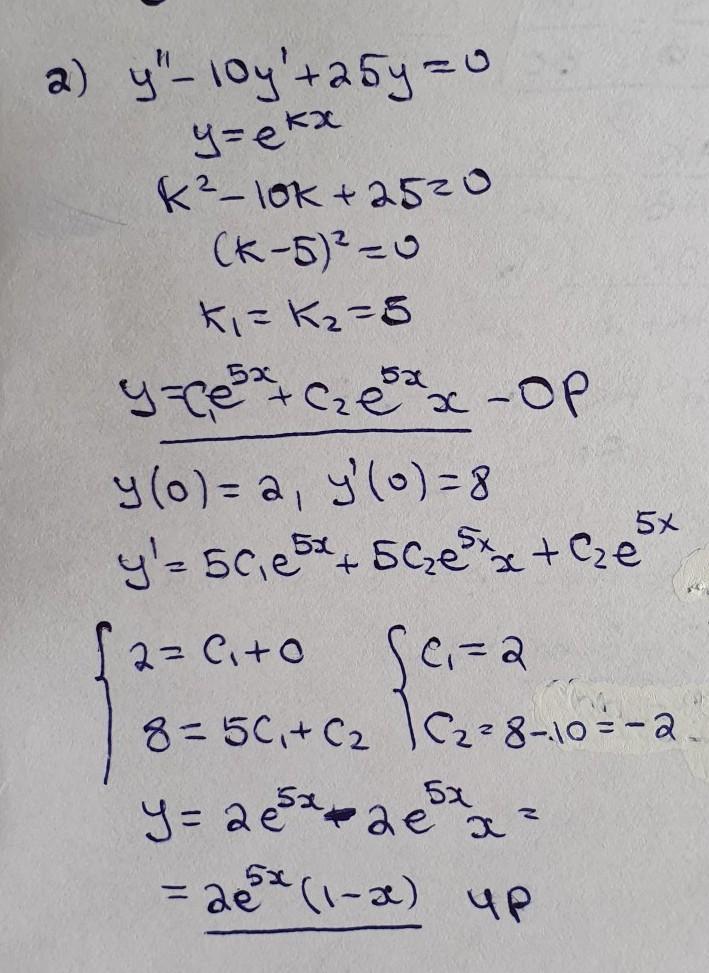 2) y'' - 10y' + 25y = 0
y = e^{kx}
k² - 10k + 25 = 0
(k - 5)² = 0
k₁ = k₂ = 5
y = C₁e^{5x} + C₂e^{5x}x - ОР
y(0) = 2, y'(0) = 8
y' = 5C₁e^{5x} + 5C₂e^{5x}x + C₂e^{5x}
{ 2 = C₁ + 0 { C₁ = 2
8 = 5C₁ + C₂ C₂ = 8 - 10 = -2
y = 2e^{5x} - 2e^{5x}x =
= 2e^{5x}(1 - x) ЧР